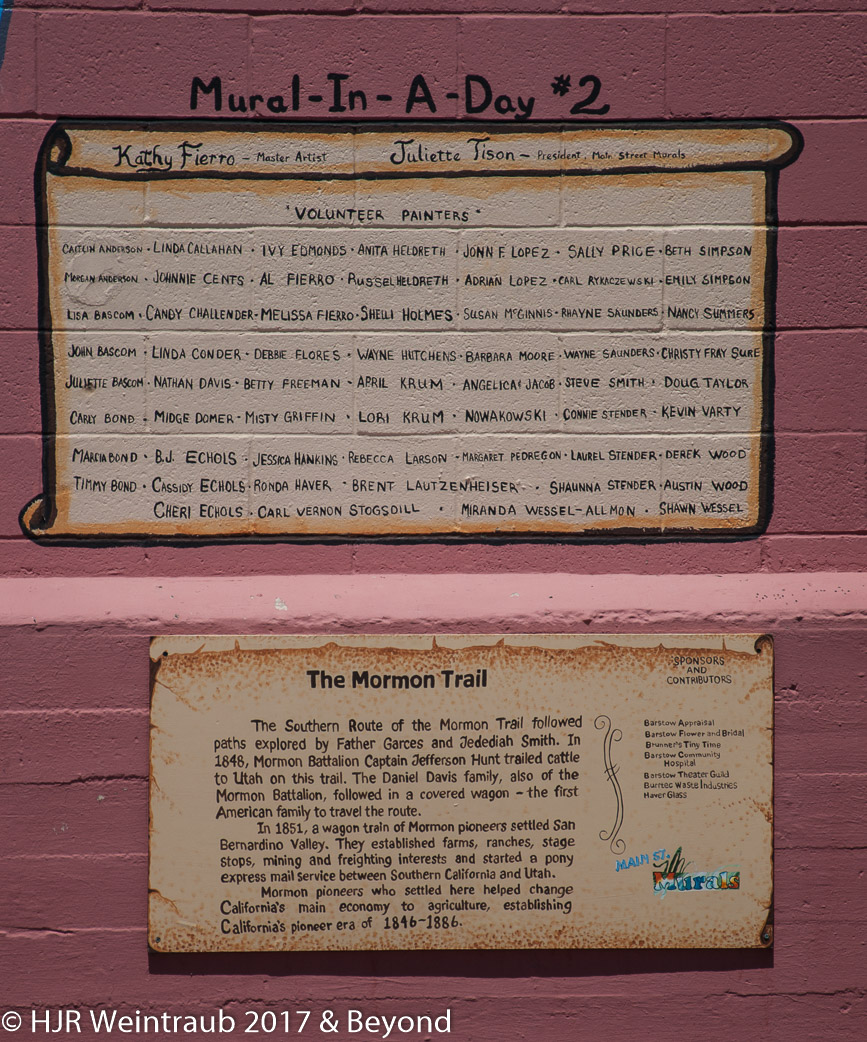 Mural-In-A-Day #2
Kathy Fierro - Master Artist Juliette Tison - President, Main Street Murals
"VOLUNTEER PAINTERS"
CAITLIN ANDERSON · LINDA CALLAHAN · IVY EDMONDS · ANITA HELDRETH · JONN F. LOPEZ · SALLY PRICE · BETH SIMPSON
MORGAN ANDERSON · JOHNNIE CENTS · AL FIERRO · RUSSEL HELDRETH · ADRIAN LOPEZ · CARL RYKACZEWSKI · EMILY SIMPSON
LISA BASCOM · CANDY CHALLENDER · MELISSA FIERRO · SHELLI HOLMES · SUSAN McGINNIS · RHAYNE SAUNDERS · NANCY SUMMERS
JOHN BASCOM · LINDA CONDER · DEBBIE FLORES · WAYNE HUTCHENS · BARBARA MOORE · WAYNE SAUNDERS · CHRISTY FRAY SURE
JULIETTE BASCOM · NATHAN DAVIS · BETTY FREEMAN · APRIL KRUM · ANGELICA & JACOB · STEVE SMITH · DOUG TAYLOR
CARLY BOND · MIDGE DOMER · MISTY GRIFFIN · LORI KRUM · NOWAKOWSKI · CONNIE STENDER · KEVIN VARTY
MARCIA BOND · B.J. ECHOLS · JESSICA HANKINS · REBECCA LARSON · MARGARET PEDREGON · LAUREL STENDER · DEREK WOOD
TIMMY BOND · CASSIDY ECHOLS · RONDA HAVER · BRENT LAUTZENHEISER · SHAUNNA STENDER · AUSTIN WOOD
CHERI ECHOLS · CARL VERNON STOGSDILL · MIRANDA WESSEL-ALLMON · SHAWN WESSEL
The Mormon Trail
The Southern Route of the Mormon Trail followed
paths explored by Father Garces and Jedediah Smith. In
1848, Mormon Battalion Captain Jefferson Hunt trailed cattle
to Utah on this trail. The Daniel Davis family, also of the
Mormon Battalion, followed in a covered wagon - the first
American family to travel the route.
In 1851, a wagon train of Mormon pioneers settled San
Bernardino Valley. They established farms, ranches, stage
stops, mining and freighting interests and started a pony
express mail service between Southern California and Utah.
Mormon pioneers who settled here helped change
California's main economy to agriculture, establishing
California's pioneer era of 1846-1886.
SPONSORS
AND
CONTRIBUTORS
Barstow Appraisal
Barstow Flower and Bridal
Brunner's Tiny Time
Barstow Community
Hospital
Barstow Theater Guild
Burrtec Waste Industries
Haver Glass
MAIN ST.
Murals
© HJR Weintraub 2017 & Beyond